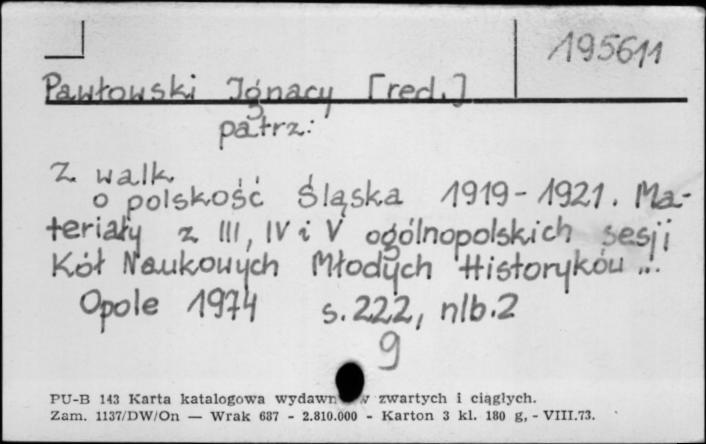 195611
Pawłowski Ignacy [red.]
patrz:
Z walk
o polskość Śląska 1919-1921. Ma-
teriały z III, IV i V ogólnopolskich sesji
Kół Naukowych Młodych Historyków ...
Opole 1974 s. 222, nlb. 2
9
PU-B 143 Karta katalogowa wydawn w zwartych i ciągłych.
Zam. 1137/DW/On — Wrak 687 - 2.810.000 - Karton 3 kl. 180 g, - VIII.73.